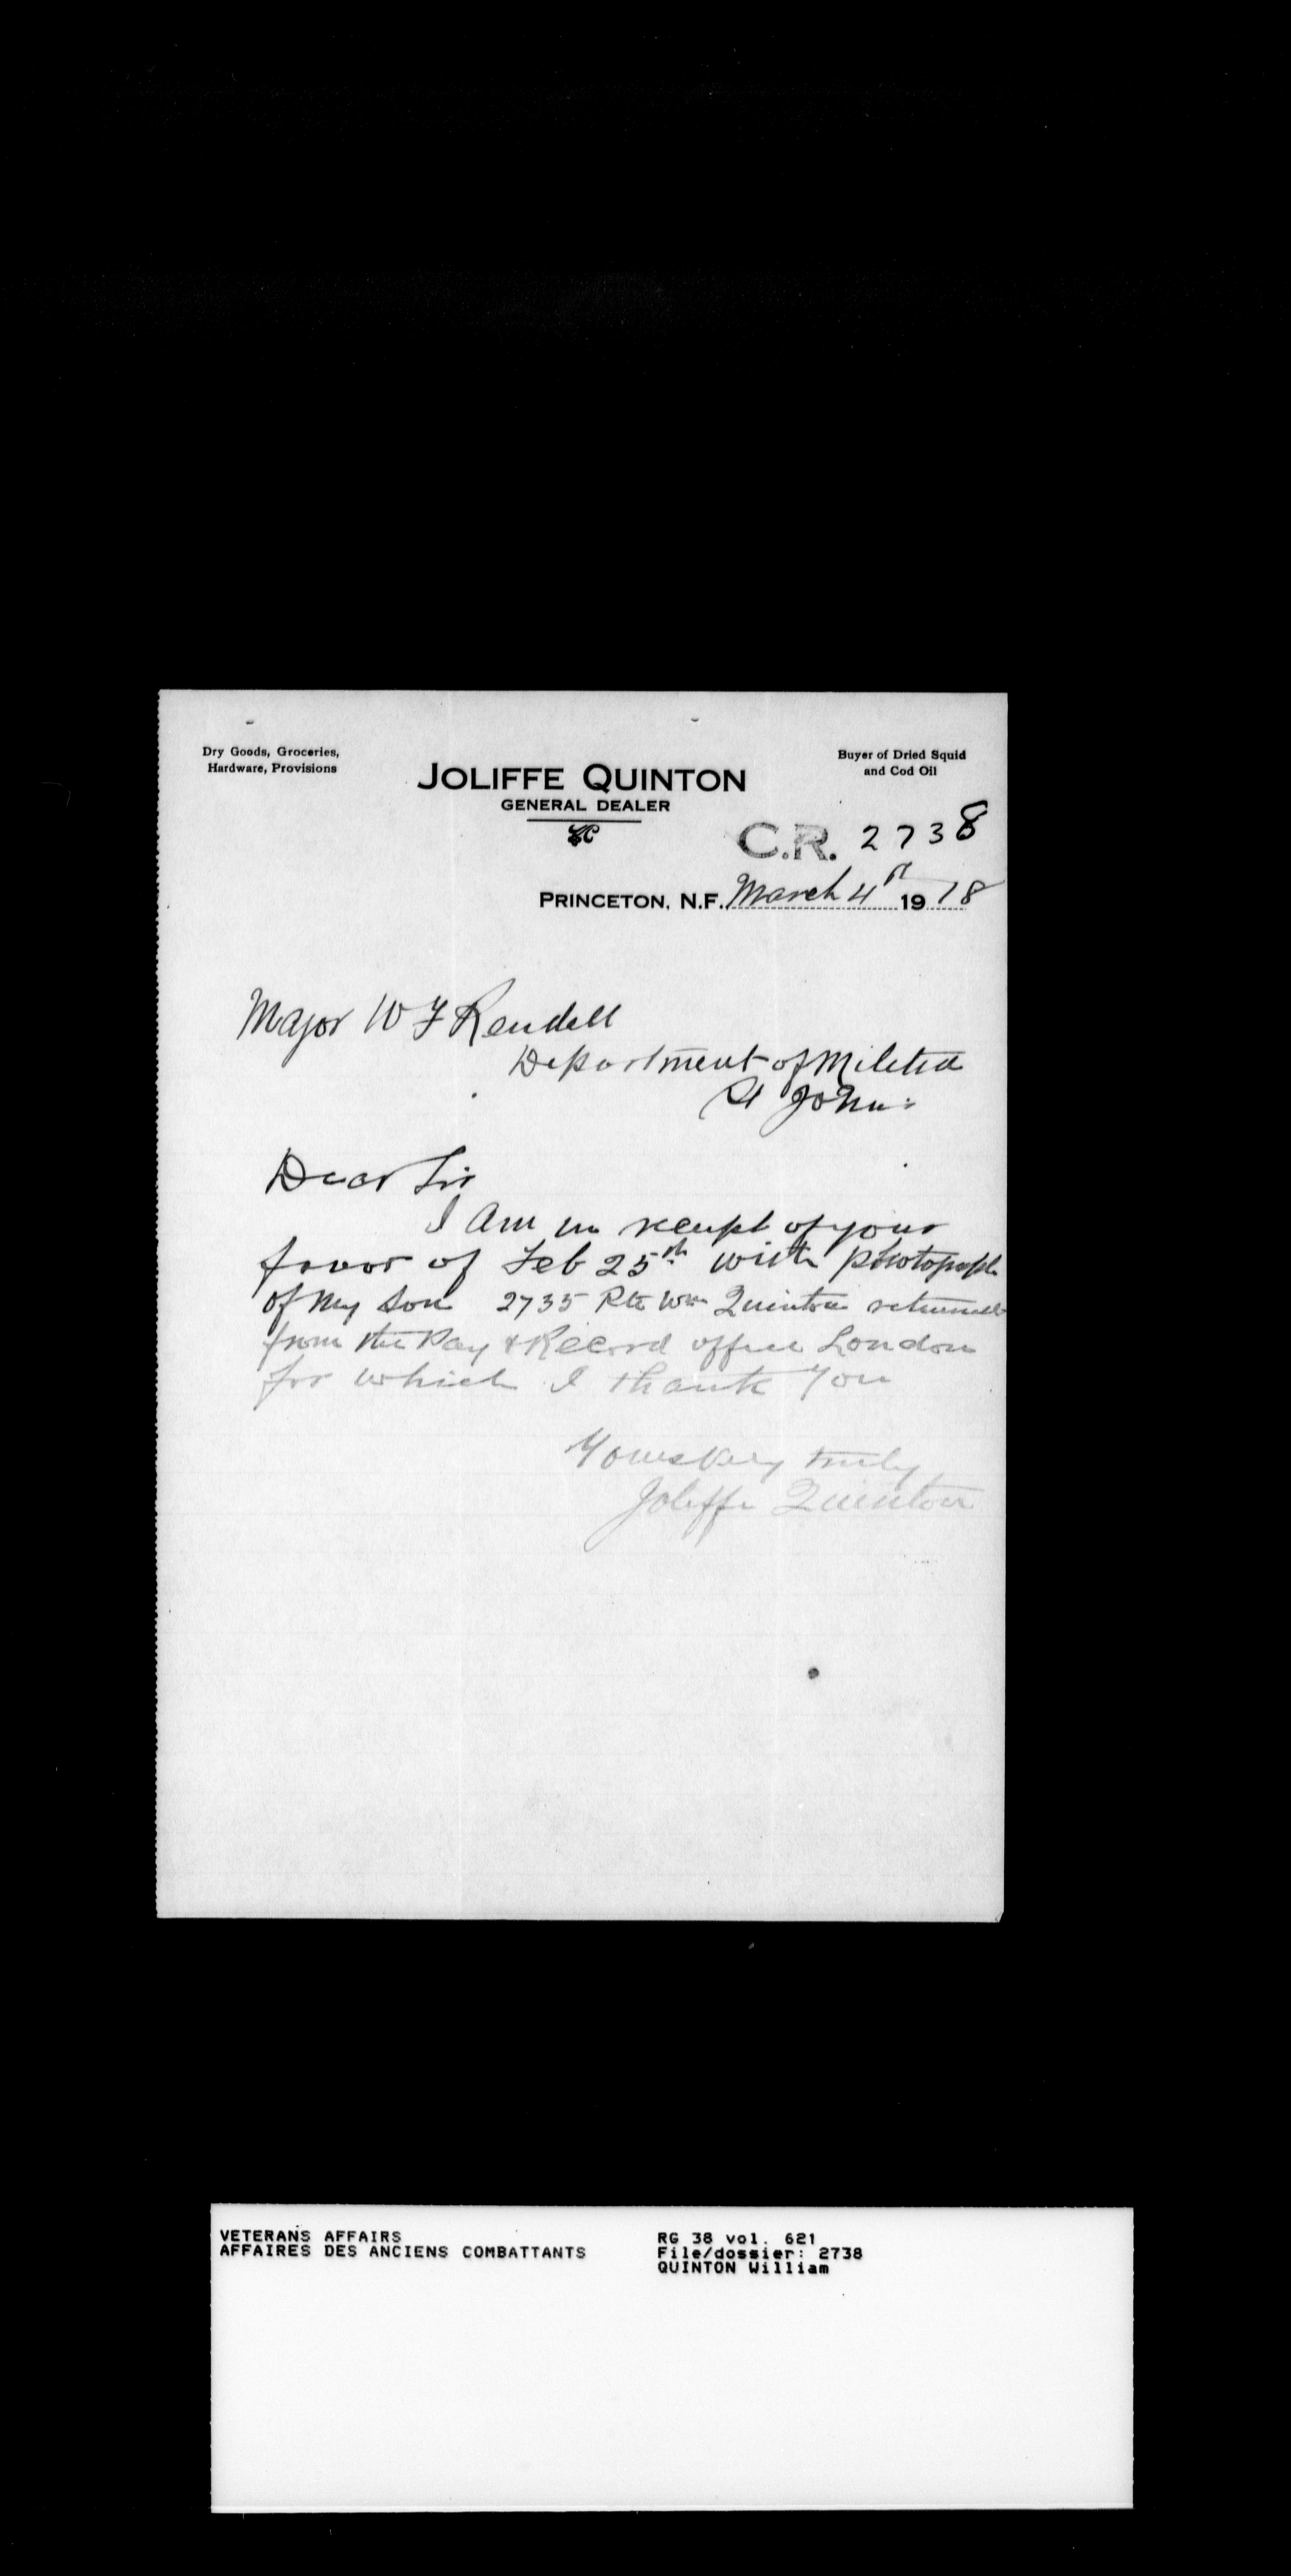 Dry Goods, Groceries,
Hardware, Provisions
Buyer of Dried Squid
and Cod Oil
JOLIFFE QUINTON
GENERAL DEALER
C.R. 2738
PRINCETON, N.F. March 4th 1918
Major W F Rendell
Department of Militia
St Johns
Dear Sir
I Am in receipt of your
favor of Feb 25th with photograph
of My Son 2735 Pte Wm Quinton returned
from the Pay & Record office London
for which I thank You
Yours Very truly
Joliffe Quinton
VETERANS AFFAIRS
AFFAIRES DES ANCIENS COMBATTANTS
RG 38 vol. 621
File/dossier: 2738
QUINTON William